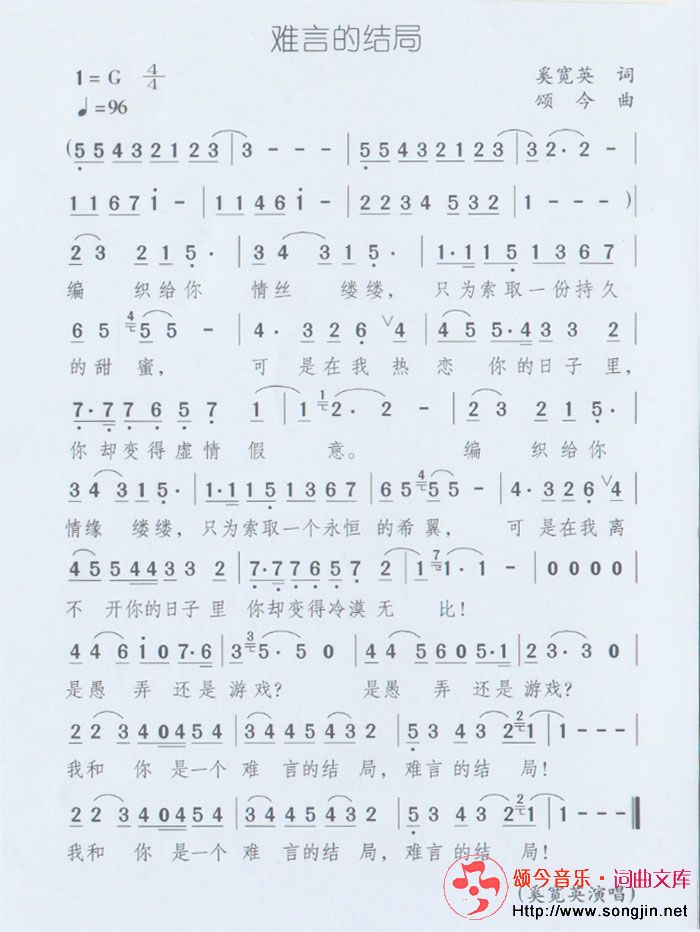 难言的结局
1=G 4/4
奚宽英 词
♩=96
颂今 曲
(5 5 4 3 2 1 2 3 | 3 - - - | 5 5 4 3 2 1 2 3 | 3 2· 2 - |
1 1 6 7 i - | 1 1 4 6 i - | 2 2 3 4 5 3 2 | 1 - - - )
2 3 2 1 5· | 3 4 3 1 5· | 1·1 1 5 1 3 6 7 |
编 织给你 情丝 缕缕, 只为索取一份持久
6 5 4 5 5 - | 4· 3 2 6 ∨ 4 | 4 5 5·4 3 3 2 |
的甜 蜜, 可 是在我 热 恋 你的日子 里,
7·7 7 6 5 7 1 | 1 1 2· 2 - | 2 3 2 1 5· |
你却变得虚情 假 意。 编 织给你
3 4 3 1 5· | 1·1 1 5 1 3 6 7 | 6 5 4 5 5 - | 4· 3 2 6 ∨ 4 |
情缘 缕缕, 只为索取一个永恒 的希 翼, 可 是在我 离
4 5 5 4 4 3 3 2 | 7·7 7 6 5 7 2 | 1 7 1·1 - | 0 0 0 0
不 开你的日子 里 你却变得冷漠 无 比!
4 4 6 i 0 7·6 | 3 5·5 0 | 4 4 5 6 0 5·1 | 2·3·3 0 |
是愚 弄 还是 游戏? 是愚 弄 还是 游戏?
2 2 3 4 0 4 5 4 | 3 4 5 4 3 2 | 5 3 4 3 2 2 1 | 1 - - -
我和 你 是一个 难 言的结 局, 难言 的结 局!
2 2 3 4 0 4 5 4 | 3 4 5 4 3 2 | 5 3 4 3 2 2 1 | 1 - - - ‖
我和 你 是一个 难 言的结 局, 难言 的结 局!
(奚宽英演唱)
颂今音乐·词曲文库
Http://www.songjin.net